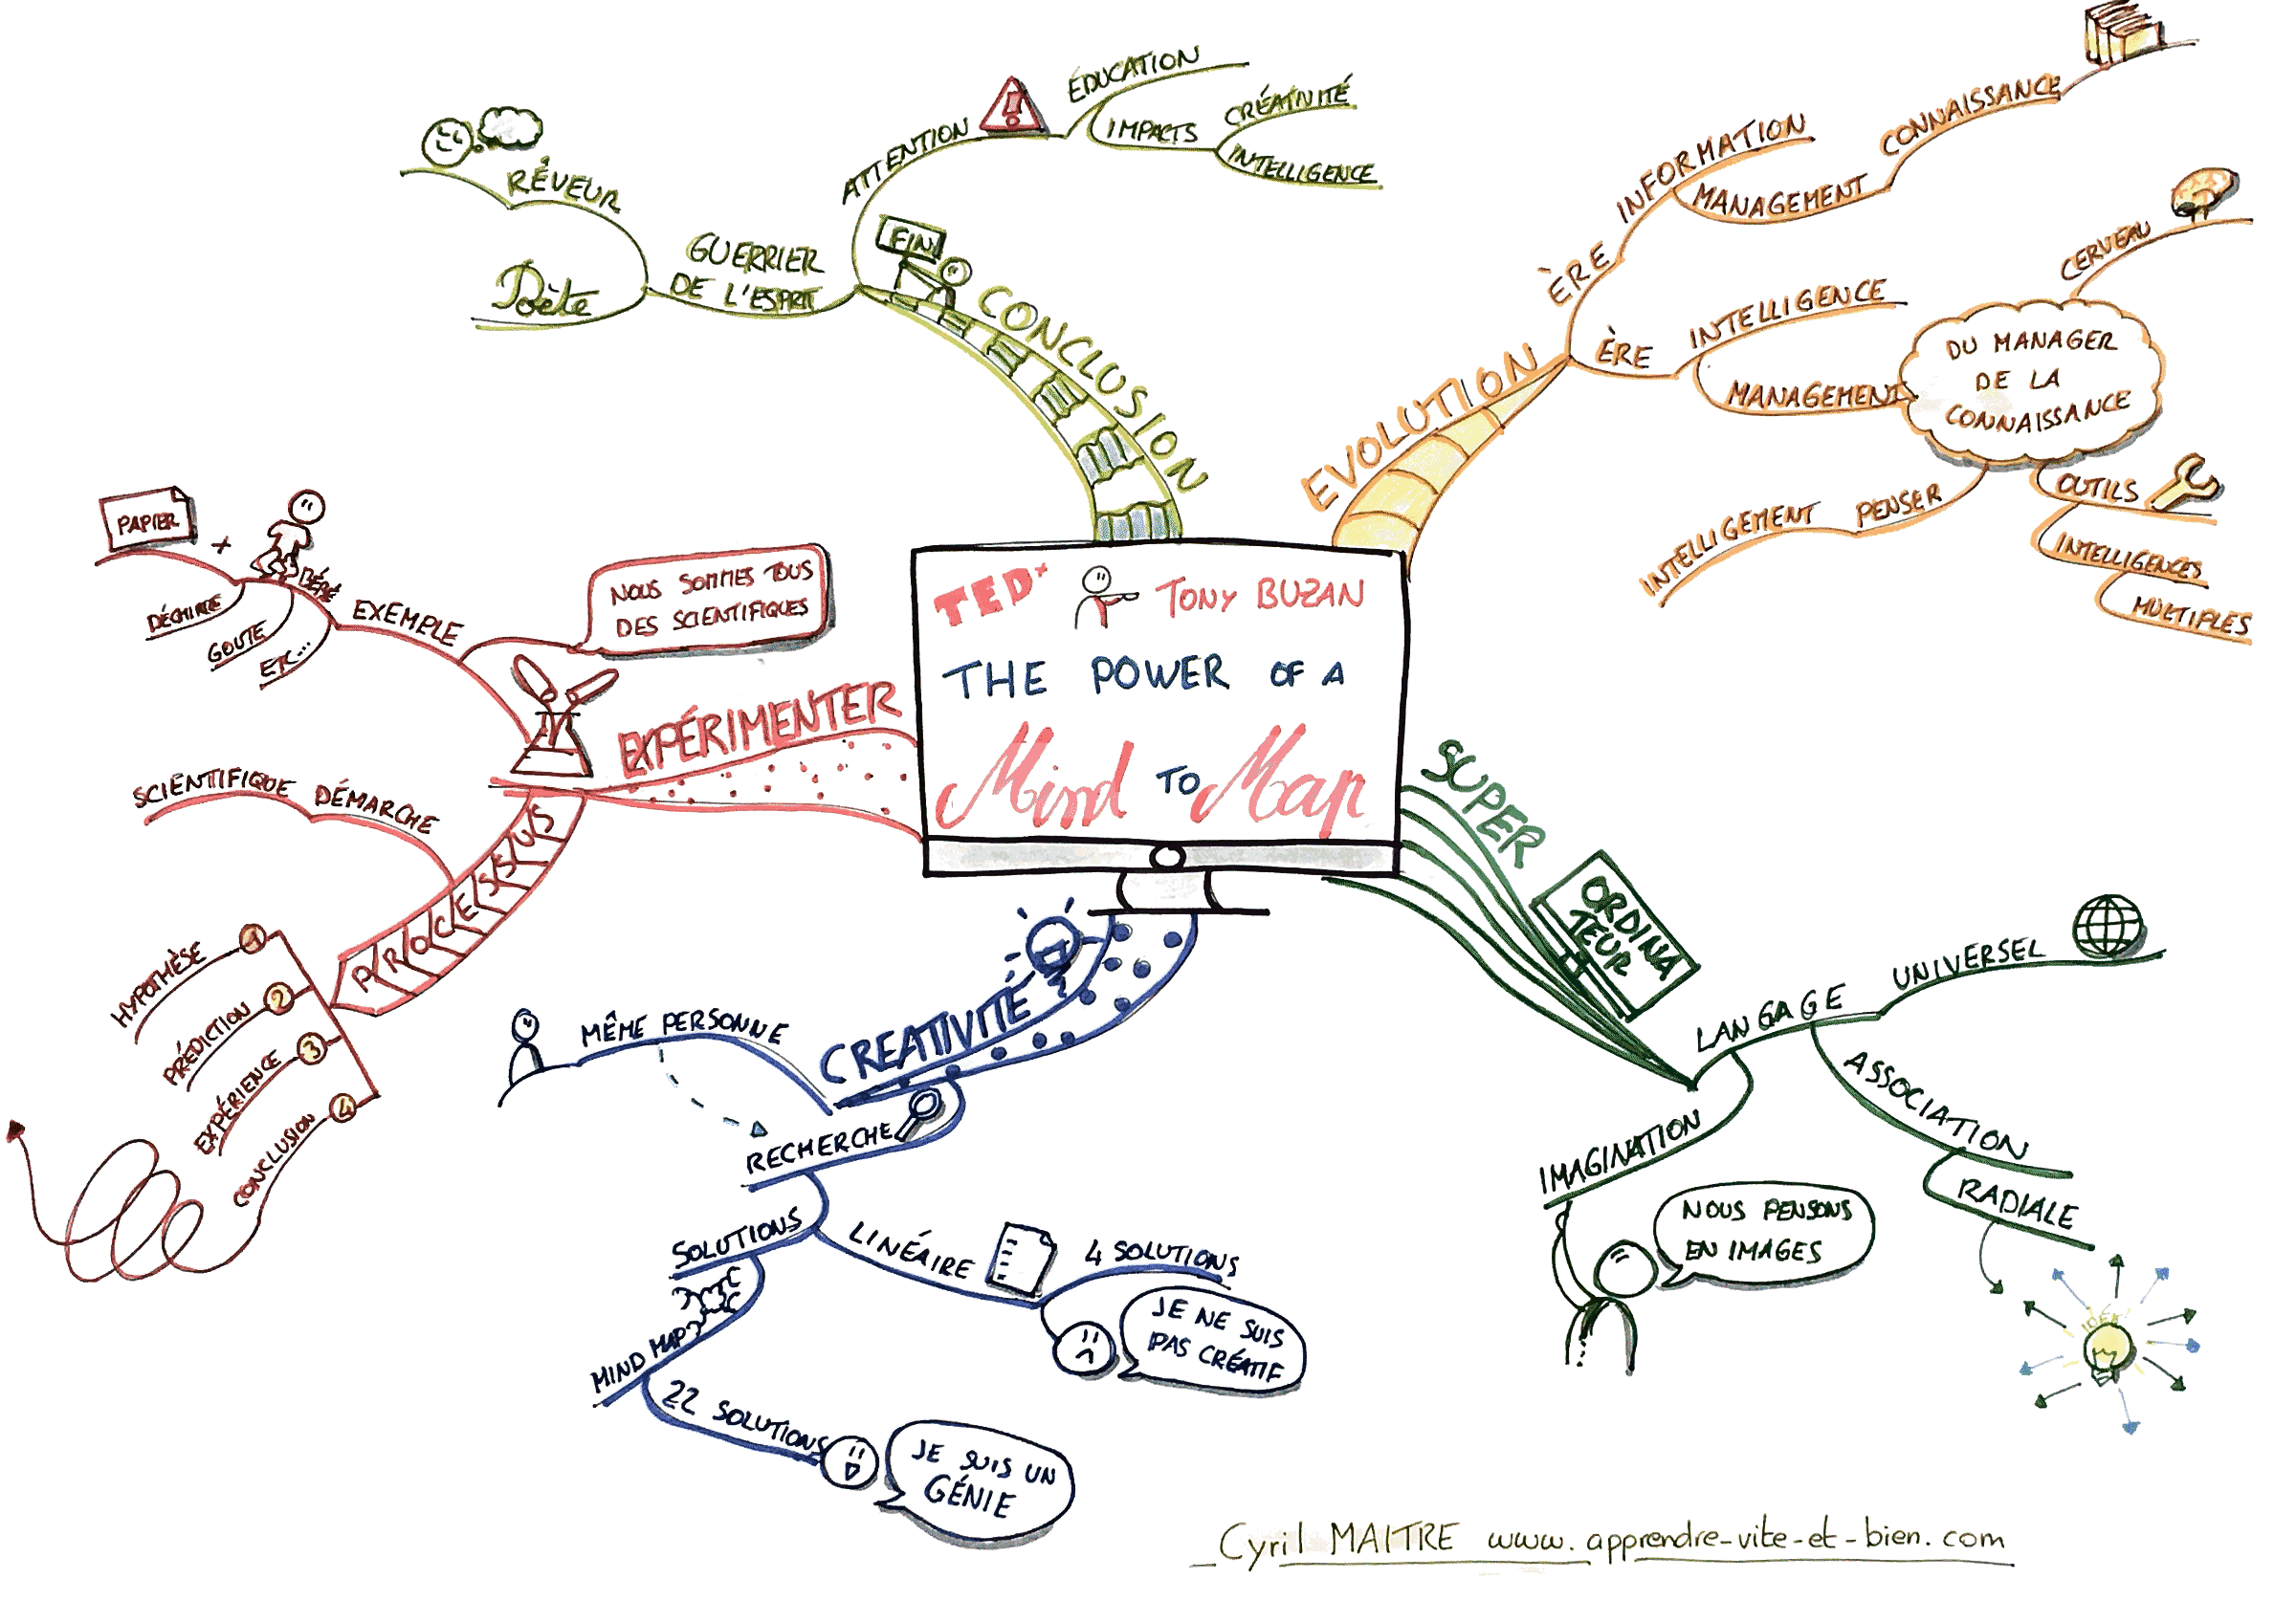 TED*
TONY BUZAN
THE POWER OF A
Mind TO Map
EVOLUTION
ÈRE
INFORMATION
MANAGEMENT
CONNAISSANCE
ÈRE
INTELLIGENCE
MANAGEMENT
DU MANAGER
DE LA
CONNAISSANCE
CERVEAU
OUTILS
INTELLIGENCES
MULTIPLES
INTELLIGEMENT PENSER
SUPER
ORDINA
TEUR
LANGAGE
UNIVERSEL
ASSOCIATION
RADIALE
IDÉE
IMAGINATION
NOUS PENSONS
EN IMAGES
CREATIVITÉ
MÊME PERSONNE
RECHERCHE
SOLUTIONS
LINÉAIRE
4 SOLUTIONS
JE NE SUIS
PAS CRÉATIF
MIND MAP
22 SOLUTIONS
JE SUIS UN
GÉNIE
EXPÉRIMENTER
NOUS SOMMES TOUS
DES SCIENTIFIQUES
EXEMPLE
BÉBÉ
+
PAPIER
DÉCHIRE
GOUTE
ETC...
PROCESSUS
SCIENTIFIQUE DÉMARCHE
1 HYPOTHÈSE
2 PRÉDICTION
3 EXPÉRIENCE
4 CONCLUSION
CONCLUSION
FIN
GUERRIER
DE L'ESPRIT
RÊVEUR
Poète
ATTENTION
!
ÉDUCATION
IMPACTS
CRÉATIVITÉ
INTELLIGENCE
Cyril MAITRE www.apprendre-vite-et-bien.com